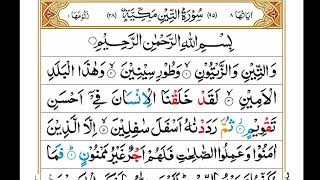 اٰيَاتُهَا ٨ (٩٥) سُوْرَةُ التِّيْنِ مَكِّيَّةٌ (٢٨) رُكُوْعُهَا ١
بِسْمِ اللّٰهِ الرَّحْمٰنِ الرَّحِيْمِ
وَالتِّيْنِ وَالزَّيْتُوْنِ ۙ وَطُوْرِ سِيْنِيْنَ ۙ وَهٰذَا الْبَلَدِ
الْاَمِيْنِ ۙ لَقَدْ خَلَقْنَا الْاِنْسَانَ فِيْۤ اَحْسَنِ
تَقْوِيْمٍ ۫ ثُمَّ رَدَدْنٰهُ اَسْفَلَ سٰفِلِيْنَ ۙ اِلَّا الَّذِيْنَ
اٰمَنُوْا وَعَمِلُوا الصّٰلِحٰتِ فَلَهُمْ اَجْرٌ غَيْرُ مَمْنُوْنٍ ؕ فَمَا